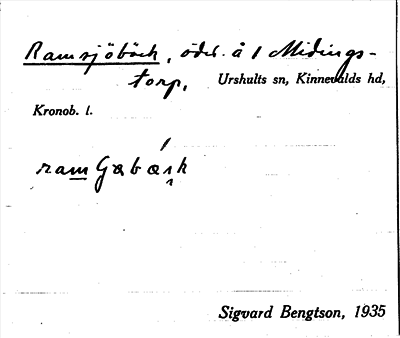 Ramsjöbäck, öde l. å / Midings-
torp, Urshults sn, Kinnevalds hd,
Kronob. l.
Sigvard Bengtson, 1935